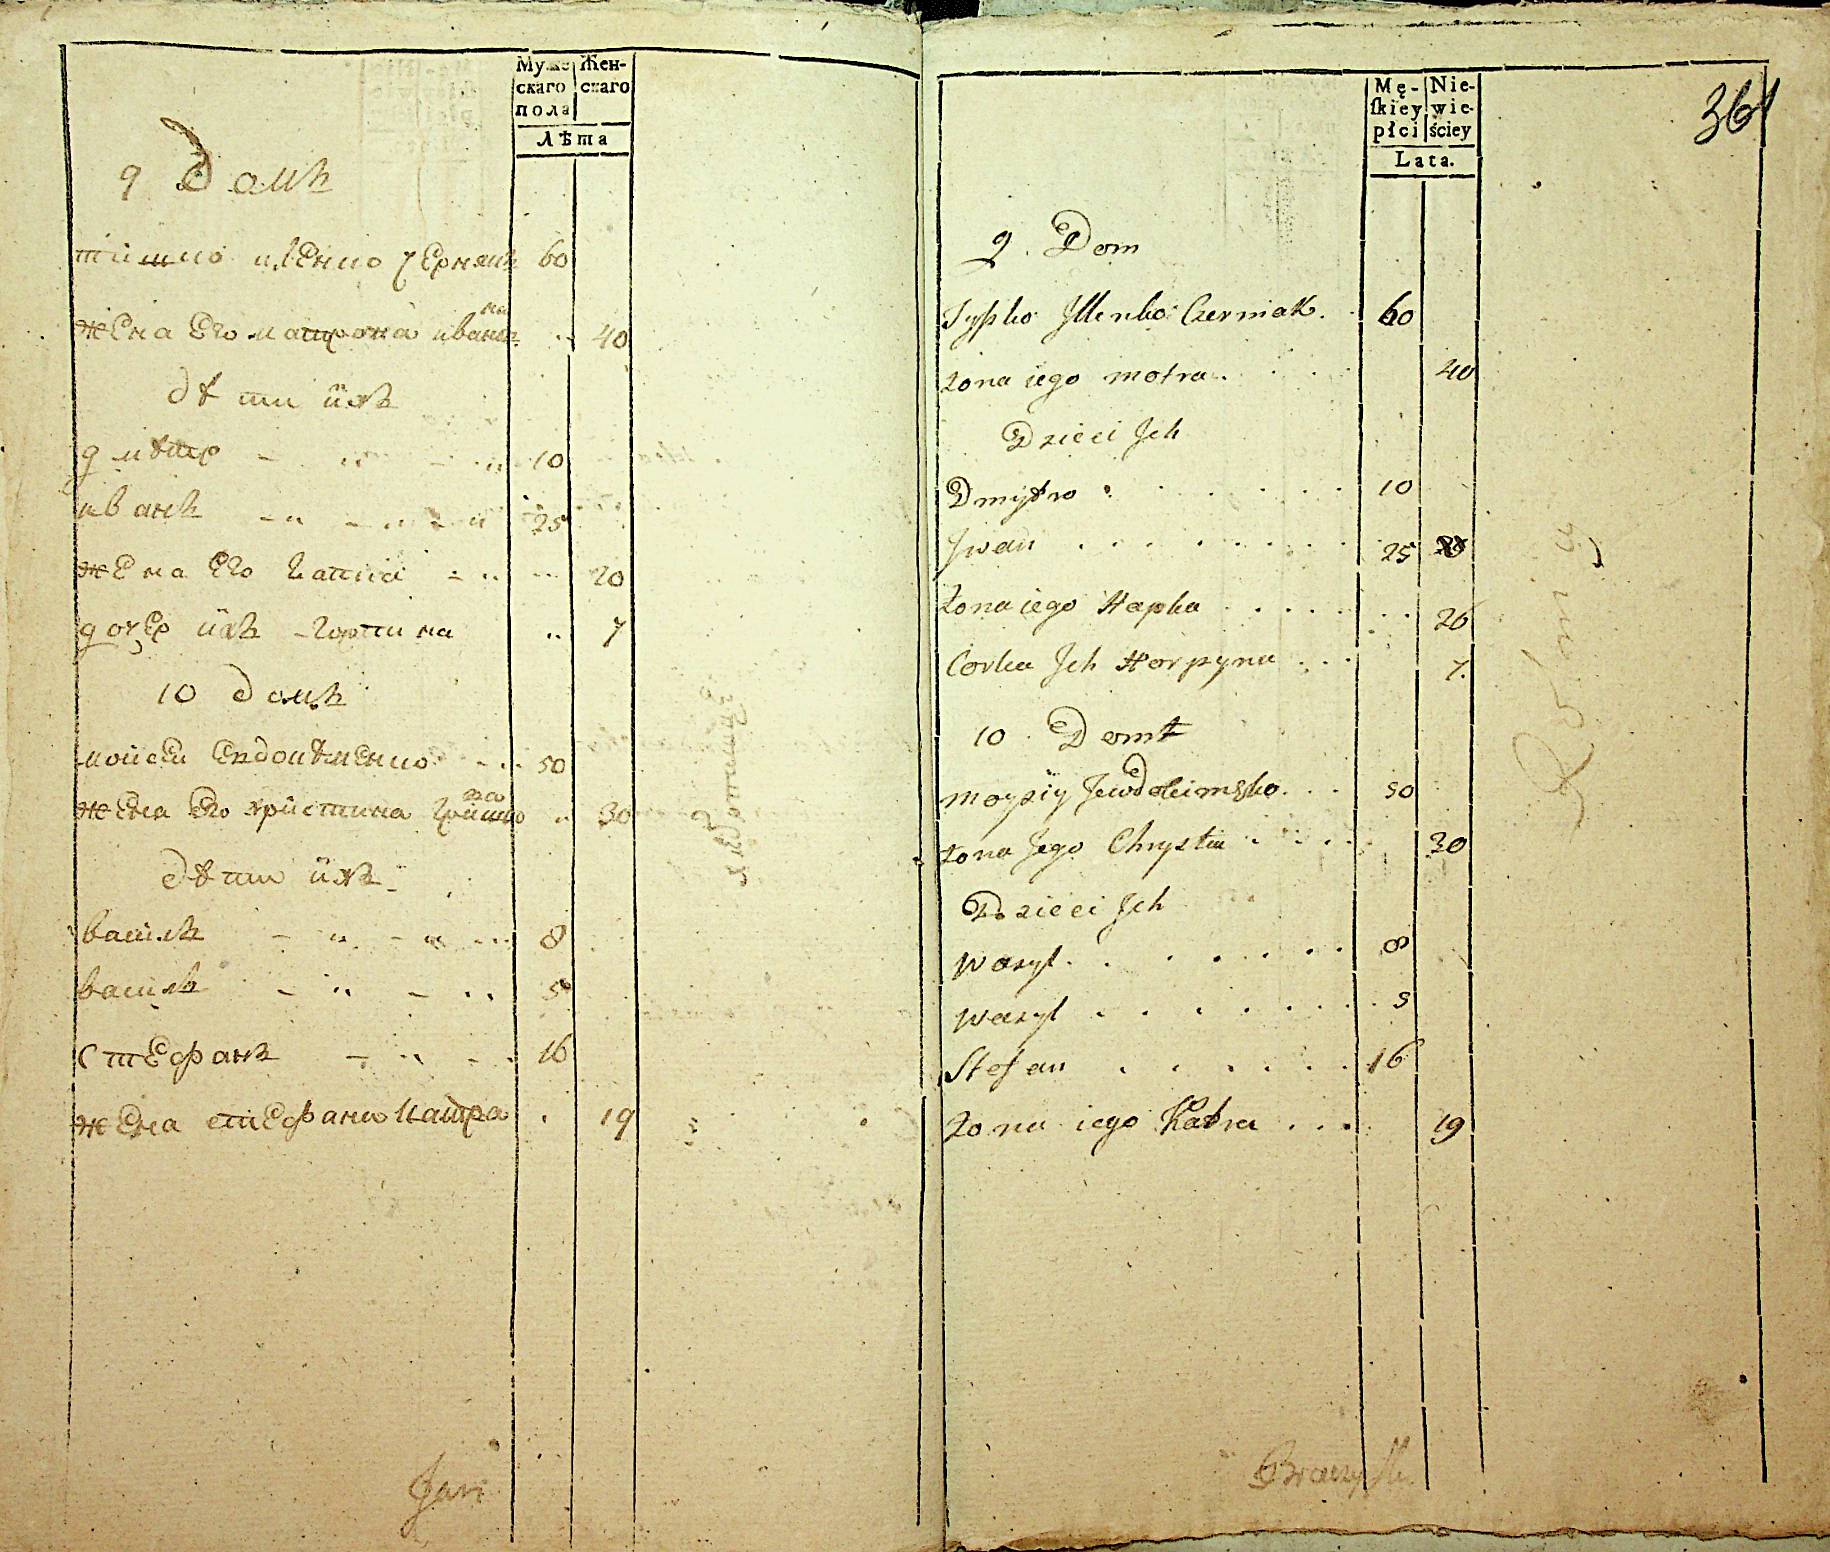 Муже
скаго
пола
Жен-
скаго
Лѣта
9 Домъ
тишко илѣнко чернякъ 60
на
жена его матрона иванъ 40
дѣти ихъ
дмѣтр 10
иванъ 25
жена его гапка 20
дочер ихъ горпина 7
10 домъ
мойсей Евдокѣменко 50
жена его христина 30
дѣти ихъ
василь 8
василь 5
стефанъ 16
жена стефана катра 19
Jan
361
Mę-
skiey
płci
Nie-
wie-
ściey
Lata.
9. Dom
Tyszko Illenko Czerniak. 60
żona iego motra 40
Dzieci Jch
Dmytro 10
Jwan 25
żona iego Hapka 20
Corka Jch Horpyna 7.
10. Domt
moyziy Jewdokimenko 50
żona Jego Chrystia 30
Dzieci Jch
wasyl 8
wasyl 5
Stefan 16
żona iego Katra 19